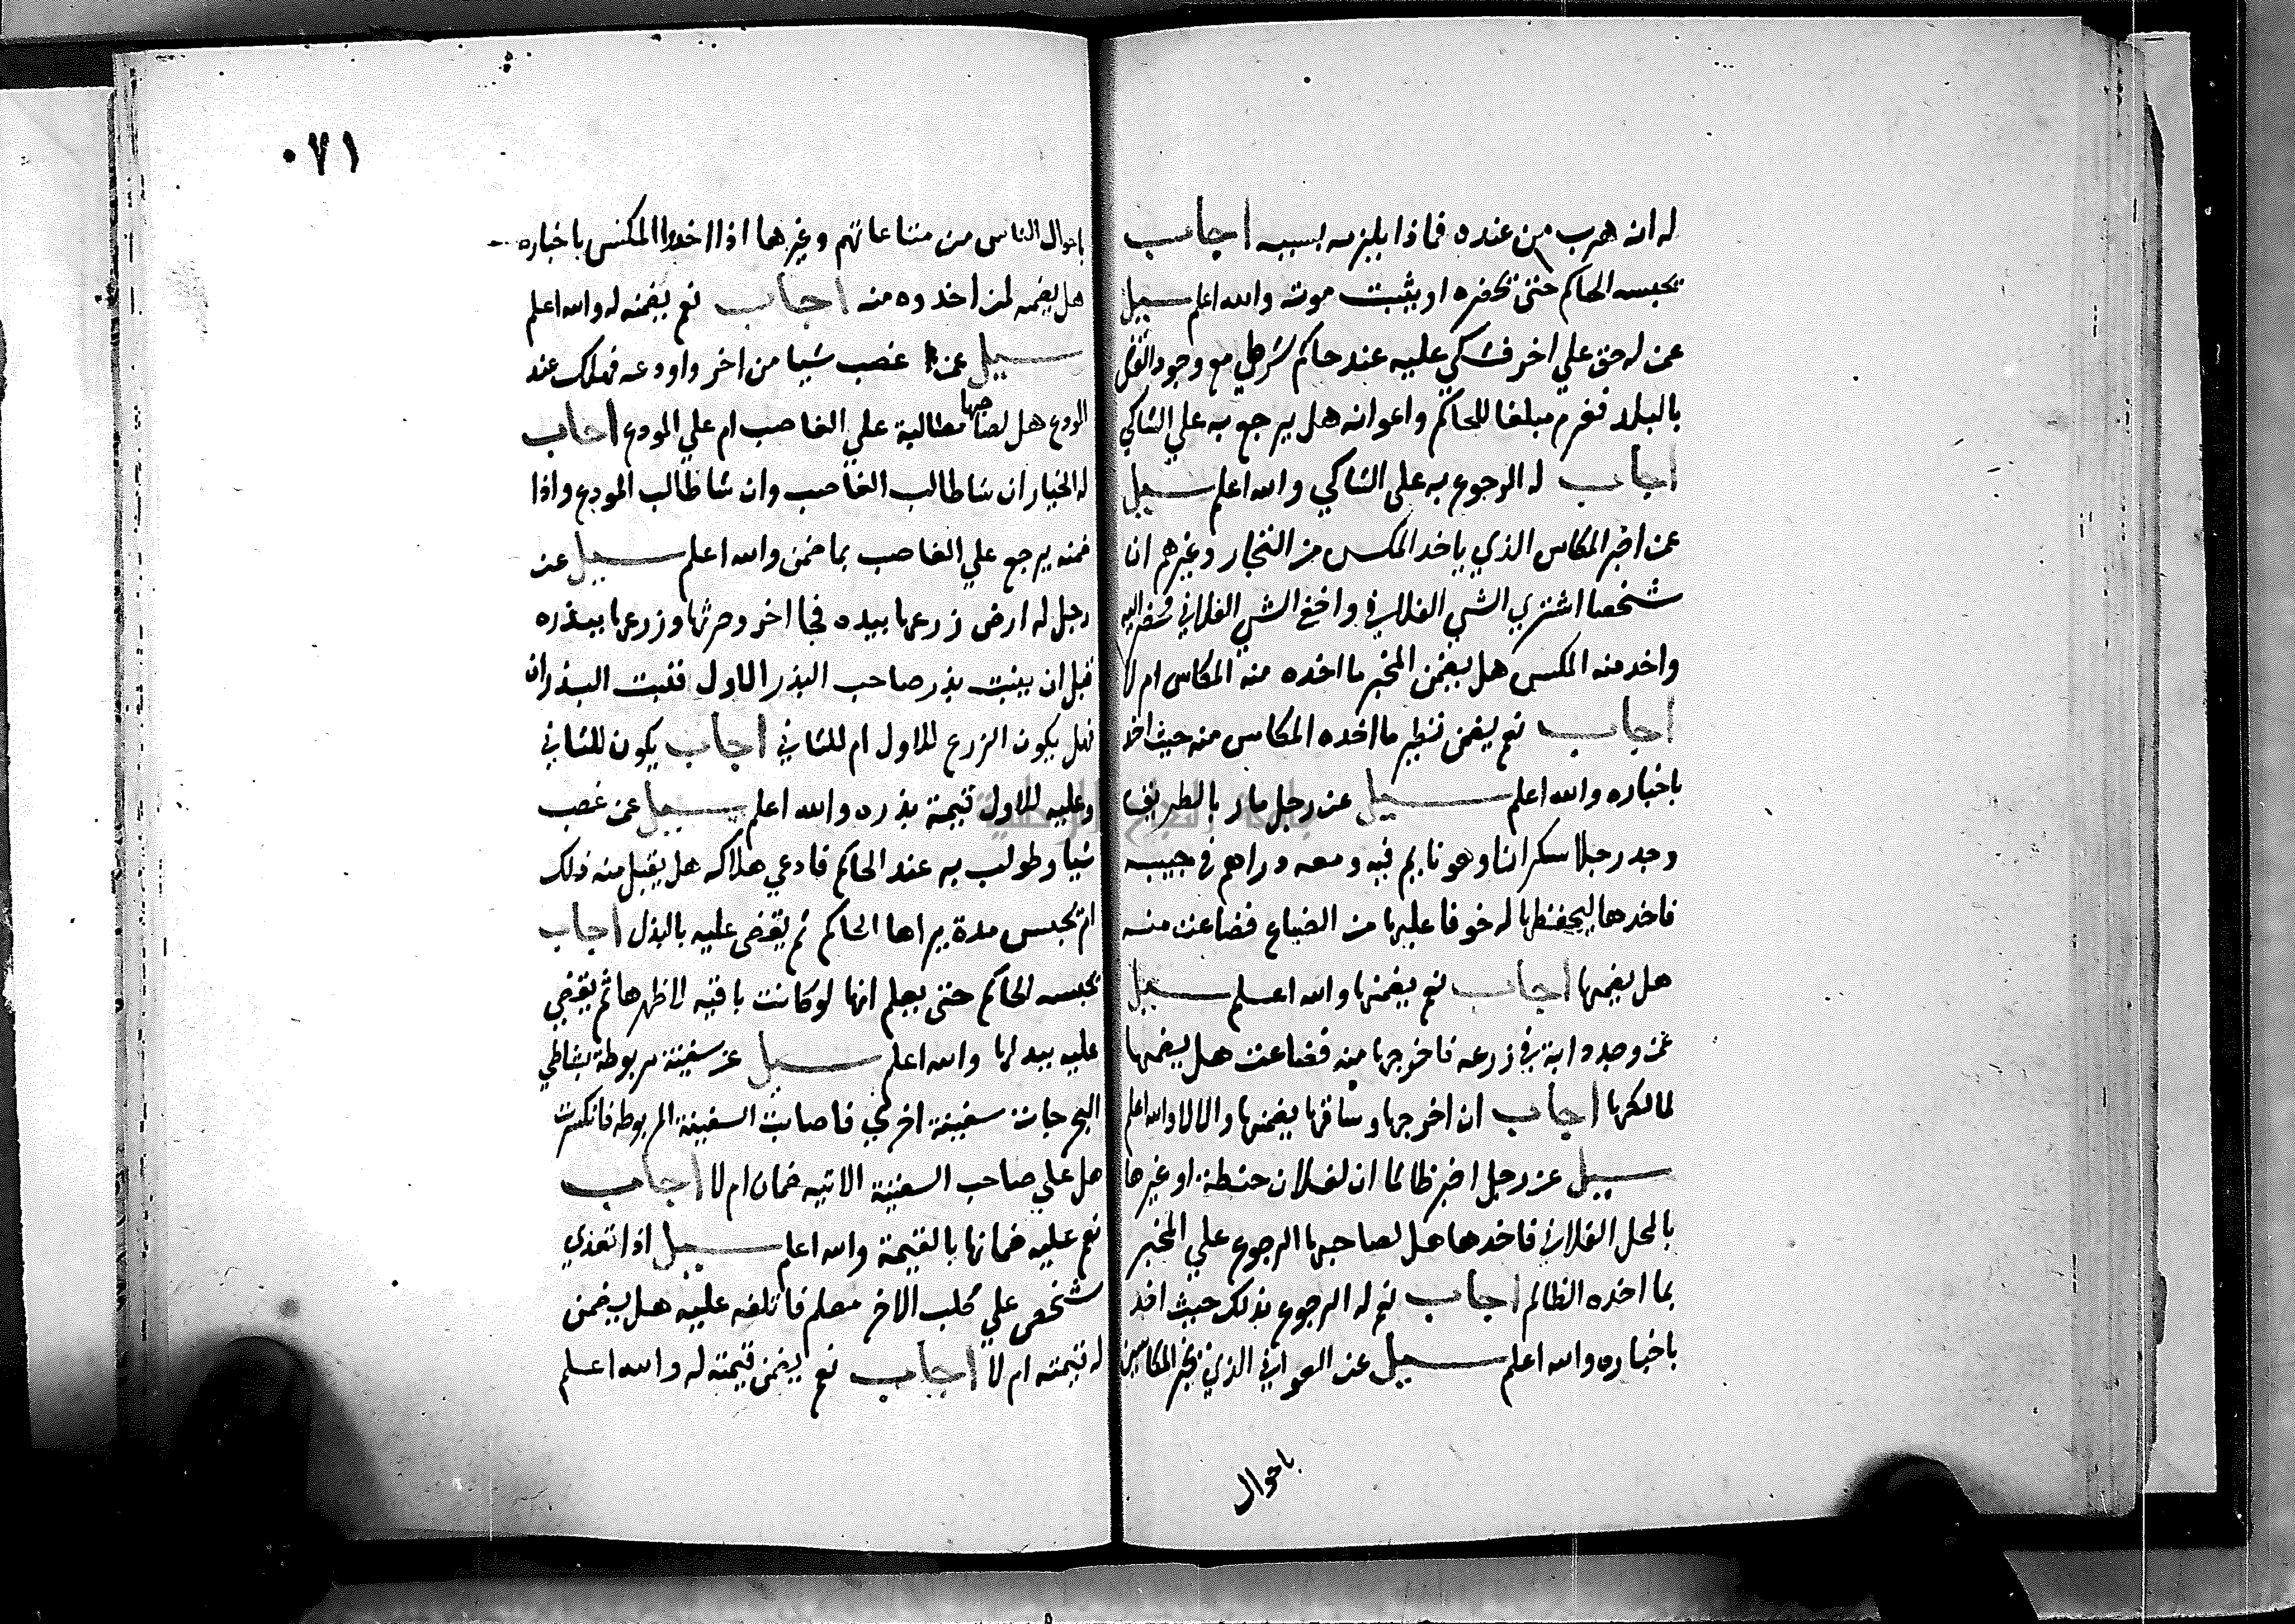 له انه هرب من عنده فماذا يلزمه بسببه اجاب
يحبسه الحاكم حتى يحضره او يثبت موته والله اعلم سيل
عمن له حق علي اخر فشكي عليه عند حاكم شرطي مع وجود
بالبلاد فغرم مبلغا للحاكم واعوانه هل يرجع به علي الشاكي
اجاب له الرجوع به على الشاكي والله اعلم سيل
عمن اخبر المكاس الذي ياخد المكس من التجار وغيرهم ان
شخصا اشتري الشي الفلاني واخفي الشي الفلاني فحضر اليه
واخد منه المكس هل يضمن المخبر ما اخده منه المكاس ام لا
اجاب نعم يضمن نظير ما اخده المكاس منه حيث اخد
باخباره والله اعلم سيل عن رجل مار بالطريق
وجد رجلا سكرانا وهو نايم فيه ومعه دراهم في جيبه
فاخدها ليحفظها له خوفا عليها من الضياع فضاعت منه
هل يضمنها اجاب نعم يضمنها والله اعلم سيل
عمن وجد دابة في زرعه فاخرجها منه فضاعت هل يضمنها
لمالكها اجاب ان اخرجها وساقها يضمنها والا لا والله اعلم
سيل عن رجل اخبر ظالما ان لفلان حنطة او غيرها
بالمحل الفلاني فاخدها هل لصاحبها الرجوع علي المخبر
بما اخده الظالم اجاب نعم له الرجوع بذلك حيث اخد
باخباره والله اعلم سيل عن العواني الذي يخبر المكاسين
باحوال
٠٧١
باحوال الناس من متاعاتهم وغيرها اذا اخدوا المكس باخباره
هل يضمنه لمن اخدوه منه اجاب نعم يضمنه له والله اعلم
سيل عمن غصب شيا من اخر واودعه فهلك عند
المودع هل لصاحبها مطالبة علي الغاصب ام علي المودع اجاب
له الخيار ان شا طالب الغاصب وان شا طالب المودع واذا
ضمنه يرجع علي الغاصب بما ضمن والله اعلم سيل عن
رجل له ارض زرعها بيده فجا اخر وحرثها وزرعها ببذره
قبل ان ينبت بذر صاحب البذر الاول فنبت البذران
فهل يكون الزرع للاول ام للثاني اجاب يكون للثاني
وعليه للاول قيمة بذره والله اعلم سيل عمن غصب
شيا وطولب به عند الحاكم فادعي هلاكه هل يقبل منه ذلك
ام يحبس مدة يراها الحاكم ثم يقضى عليه بالبدل اجاب
يحبسه الحاكم حتى يعلم انها لو كانت باقيه لاظهرها ثم يقضي
عليه ببدلها والله اعلم سيل عن سفينة مربوطة بشاطي
البحر جات سفينة اخري فاصابت السفينة المربوطه فانكسرت
هل علي صاحب السفينة الاتيه ضمان ام لا اجاب
نعم عليه ضمانها بالقيمة والله اعلم سيل اذا تعدي
شخص علي كلب الاخر معلم فاتلفه عليه هل يضمن
له قيمته ام لا اجاب نعم يضمن قيمته له والله اعلم